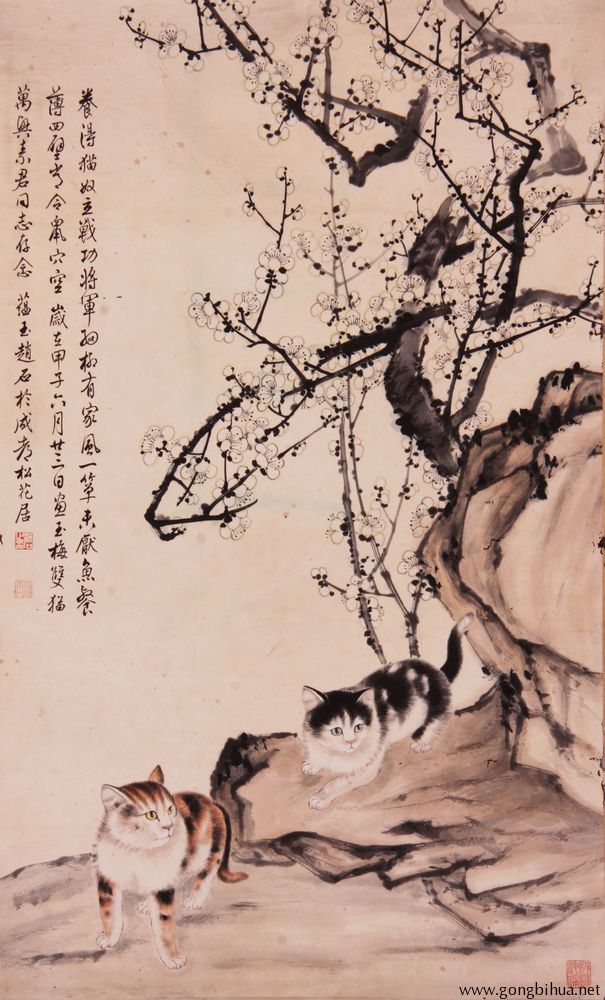 養得猫奴立戰功將軍細柳有家風一簞未厭魚餐
薄四壁當令鼠穴空 歲在甲子六月廿三日画玉梅雙猫
萬興素君同志存念 蕴玉趙石於成都松花居
www.gongbihua.net